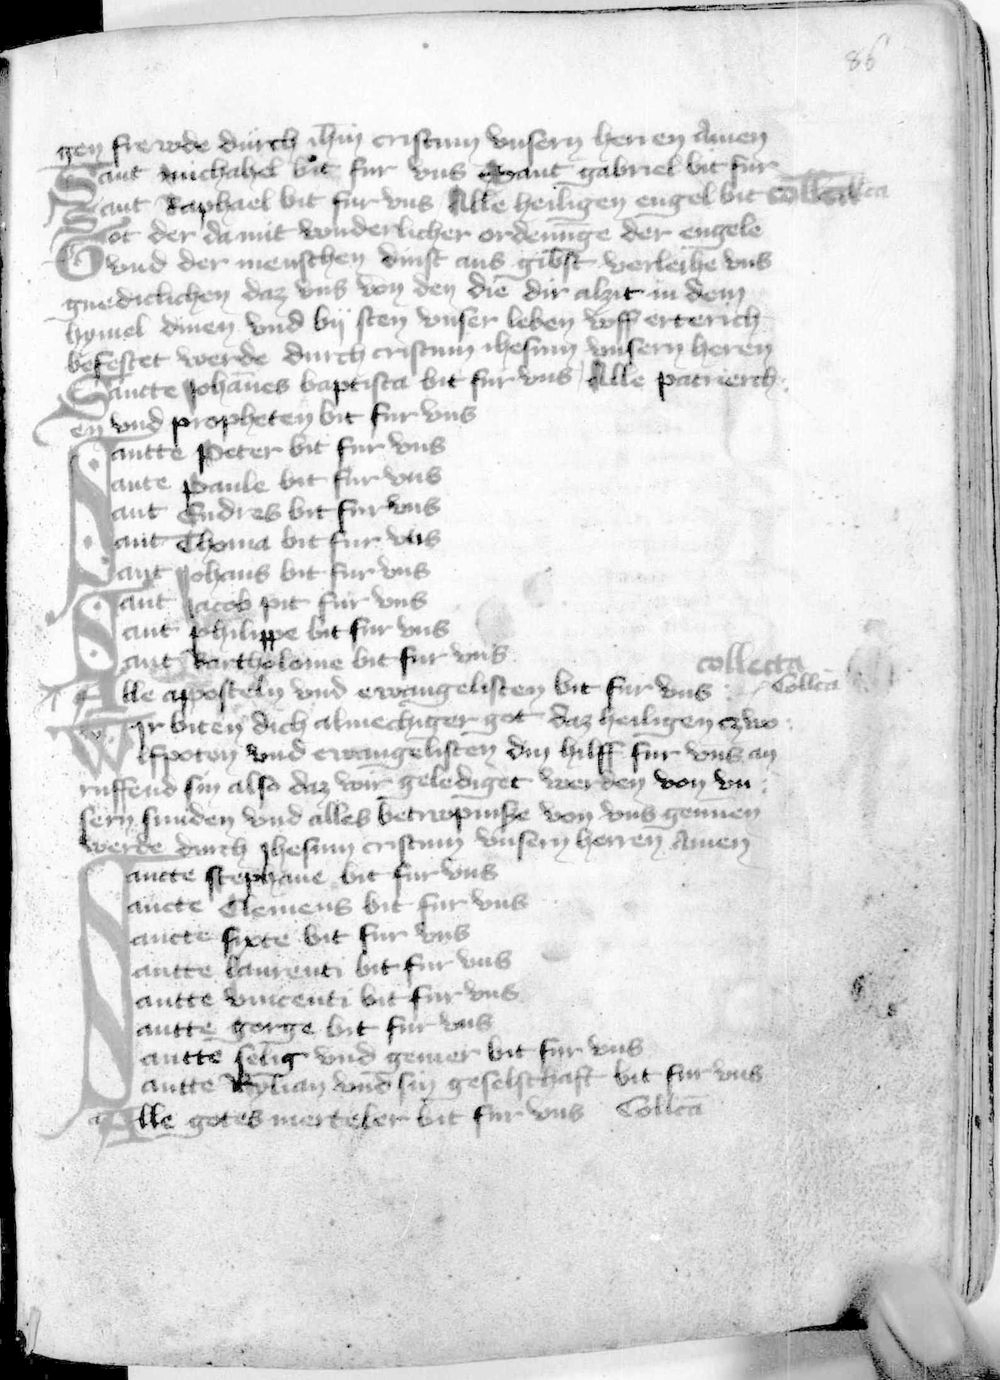 86
gen frewde durch ihm cristum vnsern herren Amen
Sant michahel bit fur vns Sant gabriel bit fur
Sant Raphael bit fur vns Alle heiligen engel bit Collecta
Got der da mit wonderlicher ordenunge der engele
vnd der menschen dinst aus gibst verleihe vns
gnediclichen daz vns von den die dir alzit in dem
hymel dinen vnd bij sten vnser leben vff erterich
befestet werde durch cristum ihesum vnsern heren
Santte Johannes baptista bit fur vns Alle patrierch:
en vnd propheten bit fur vns
Santte Peter bit fur vns
ante Paule bit fur vns
ant Endres bit fur vns
ant Thoma bit fur vns
ant Johans bit fur vns
Sant Jacob pit fur vns
ant philippe bit fur vns
ant Bartholome bit fur vns
collecta
Alle apposteln vnd ewangelisten bit fur vns Collca
Wir biten dich almechtiger got daz heiligen czwo:
lfpoten vnd ewangelisten din hilff fur vns an
ruffend sin also daz wir gelediget werden von vn:
sern sunden vnd alles betrwpniße von vns genmen
werde durch Jhesum cristum vnsern herren Amen
Sancte stephane bit fur vns
ancte Clemens bit fur vns
ancte sixte bit fur vns
antte laurenti bit fur vns
antte vincenti bit fur vns
antte gorge bit fur vns
antte vnd bit fur vns
antte Kylian vnd sin geselschaft bit fur vns
Alle gotes merteler bit fur vns Collca